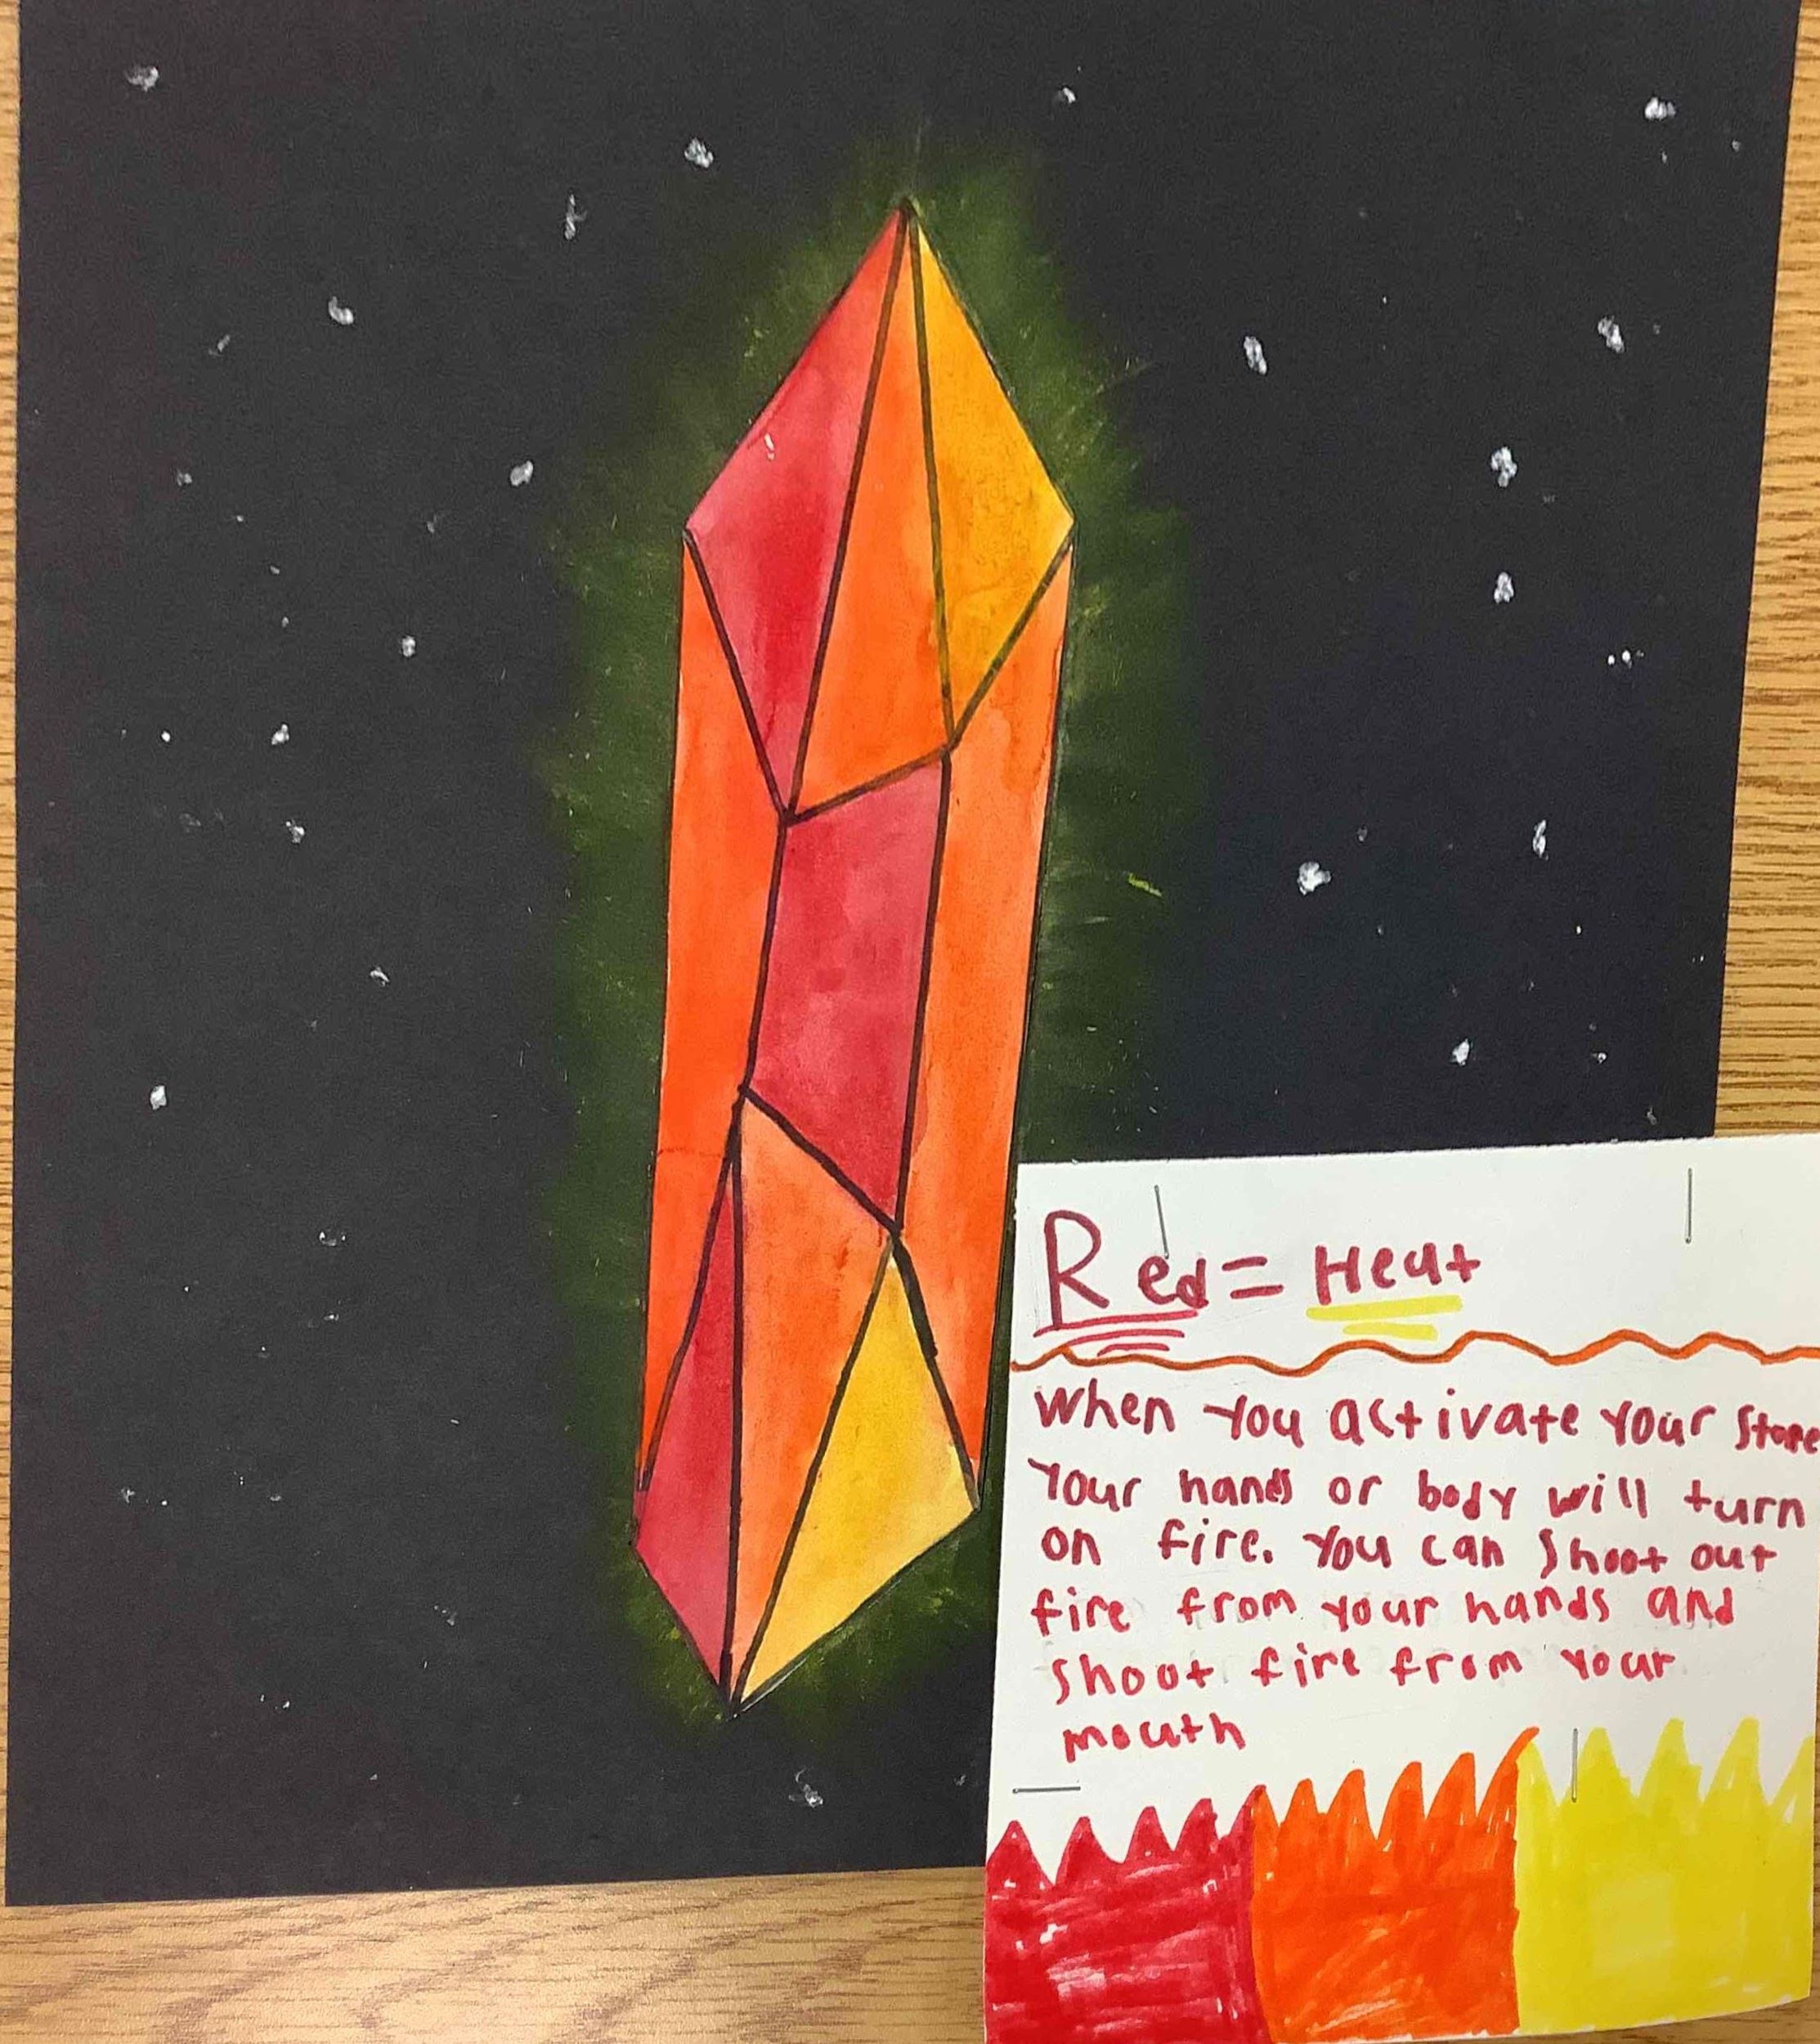 Red = Heat
When you activate your stone
Your hands or body will turn
on fire. You can shoot out
fire from your hands and
shoot fire from your
mouth